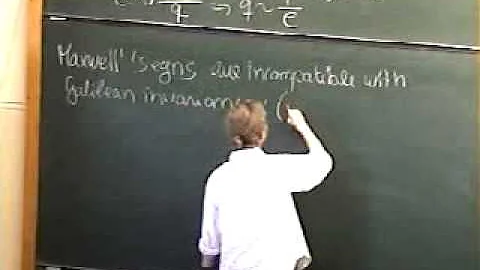 q → q ~ 1/e
Maxwell's eqns are incompatible with
Galilean invariance (